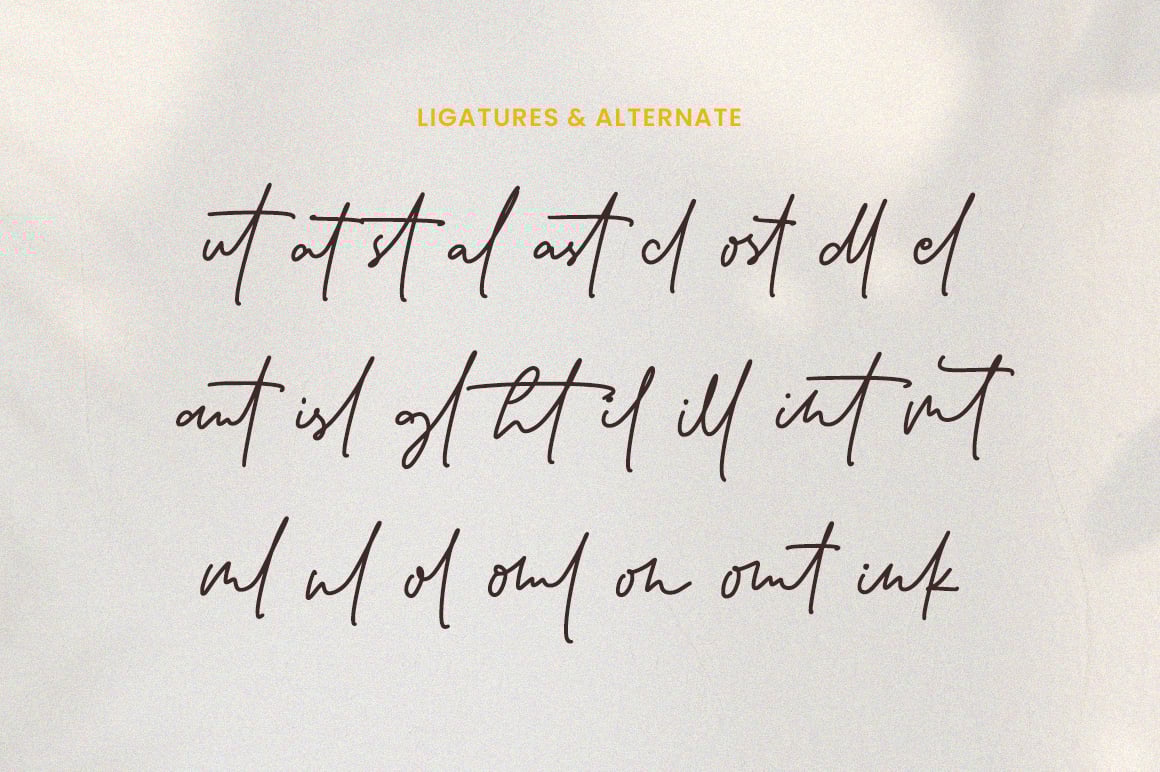 LIGATURES & ALTERNATE
ut at st al ast cl ost dl el
ant isl gl ht il ill int mt
ml nl ol oml on omt ink